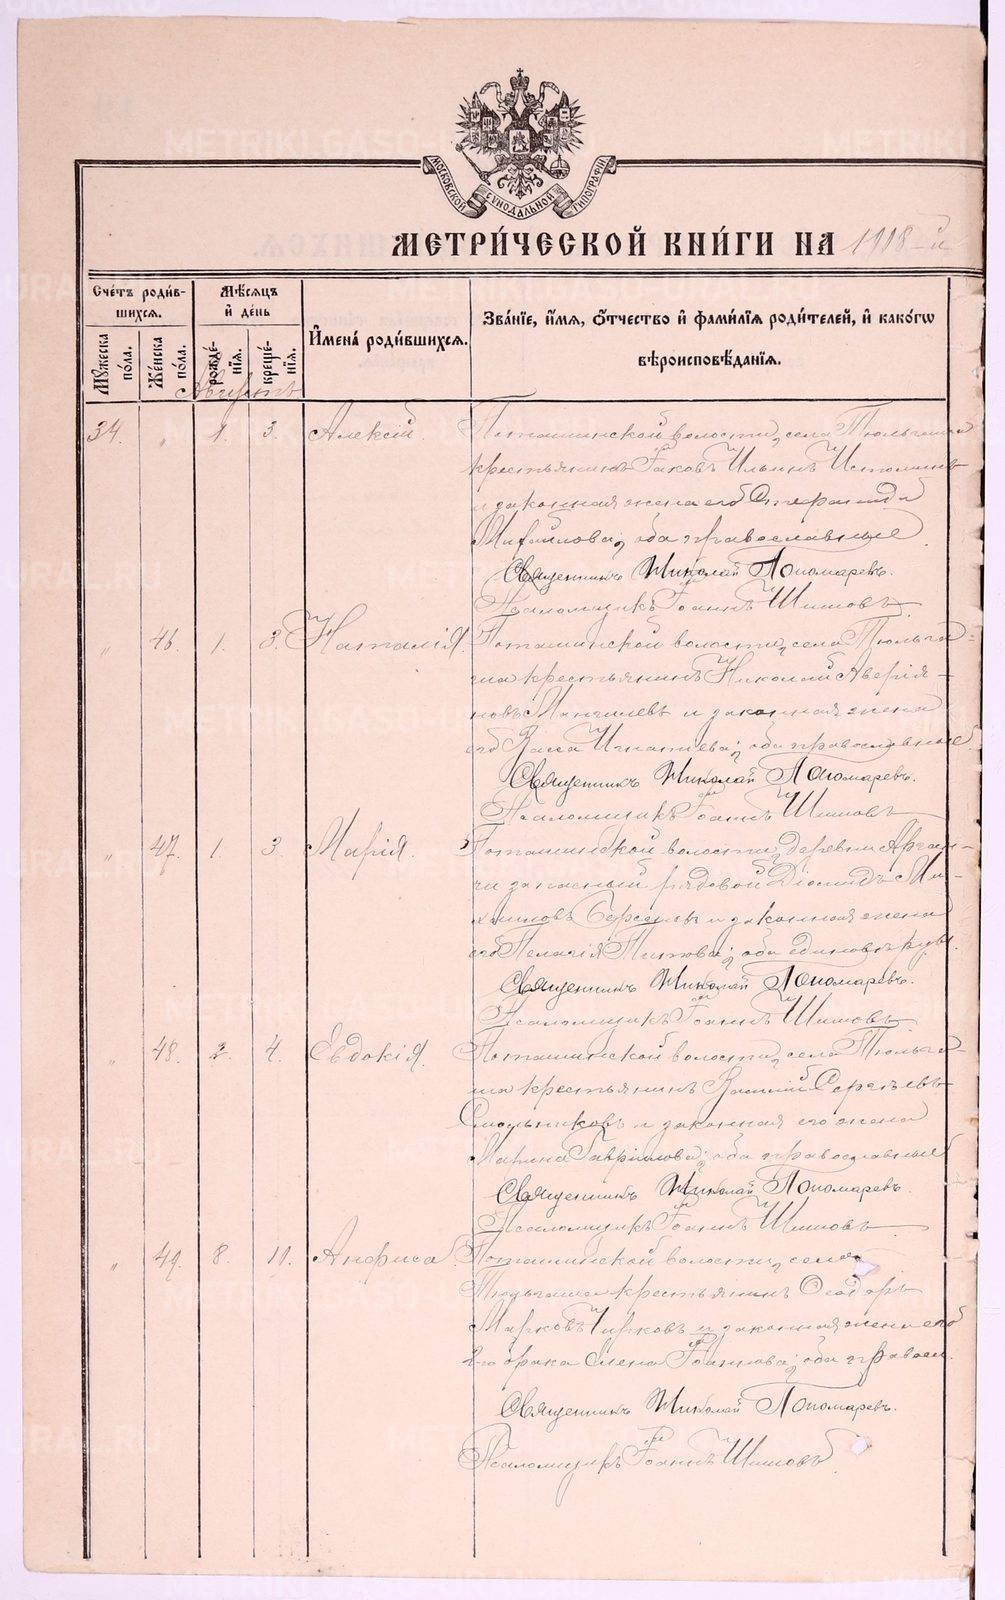 МОСКОВСКОЙ СѴНОДАЛЬНОЙ ТИПОГРАФІИ
МЕТРИ́ЧЕСКОЙ КНИ́ГИ НА 1918-й
Сче́тъ роди́вшихся.
Мѣ́сяцъ и҆ де́нь
И҆мена̀ роди́вшихся.
Зва́нїе, и҆́мя, ѻ҆́тчество и҆ фами́лїѧ роди́телей, и҆ како́гѡ
вѣроисповѣ́данїѧ.
Мꙋ́жеска по́ла.
Же́нска по́ла.
рожде́нїѧ.
креще́нїѧ.
Августъ
34. " 1. 3. Алексій. Поташинской волости, села Тюльгаша
крестьянинъ Іаковъ Ильинъ Истоминъ
и законная жена его
Михайлова, оба православные
Священникъ Николай Пономаревъ.
Псаломщикъ Іоаннъ Шишовъ
" 46. 1. 3. Наталія. Поташинской волости, села Тюльга-
ша крестьянинъ Николай Аверія-
новъ и законная жена
его Васса Игнатіева, оба православные
Священникъ Николай Пономаревъ.
Псаломщикъ Іоаннъ Шишовъ
" 47. 1. 3. Марія. Поташинской волости, деревни
запасный рядовой Діомидъ Ми-
хаиловъ и законная жена
его Пелагія Титова, оба единовѣрцы.
Священникъ Николай Пономаревъ.
Псаломщикъ Іоаннъ Шишовъ
" 48. 2. 4. Евдокія. Поташинской волости, села Тюльга-
ша крестьянинъ Василій Сергѣевъ
Смольниковъ и законная его жена
Марина Гавріилова, оба православные
Священникъ Николай Пономаревъ.
Псаломщикъ Іоаннъ Шишовъ
" 49. 8. 11. Анфиса. Поташинской волости, села
Тюльгаша крестьянинъ Ѳеодоръ
Марковъ Чирковъ и законная жена его
2-го брака Елена Іоаннова, оба правосл.
Священникъ Николай Пономаревъ.
Псаломщикъ Іоаннъ Шишовъ